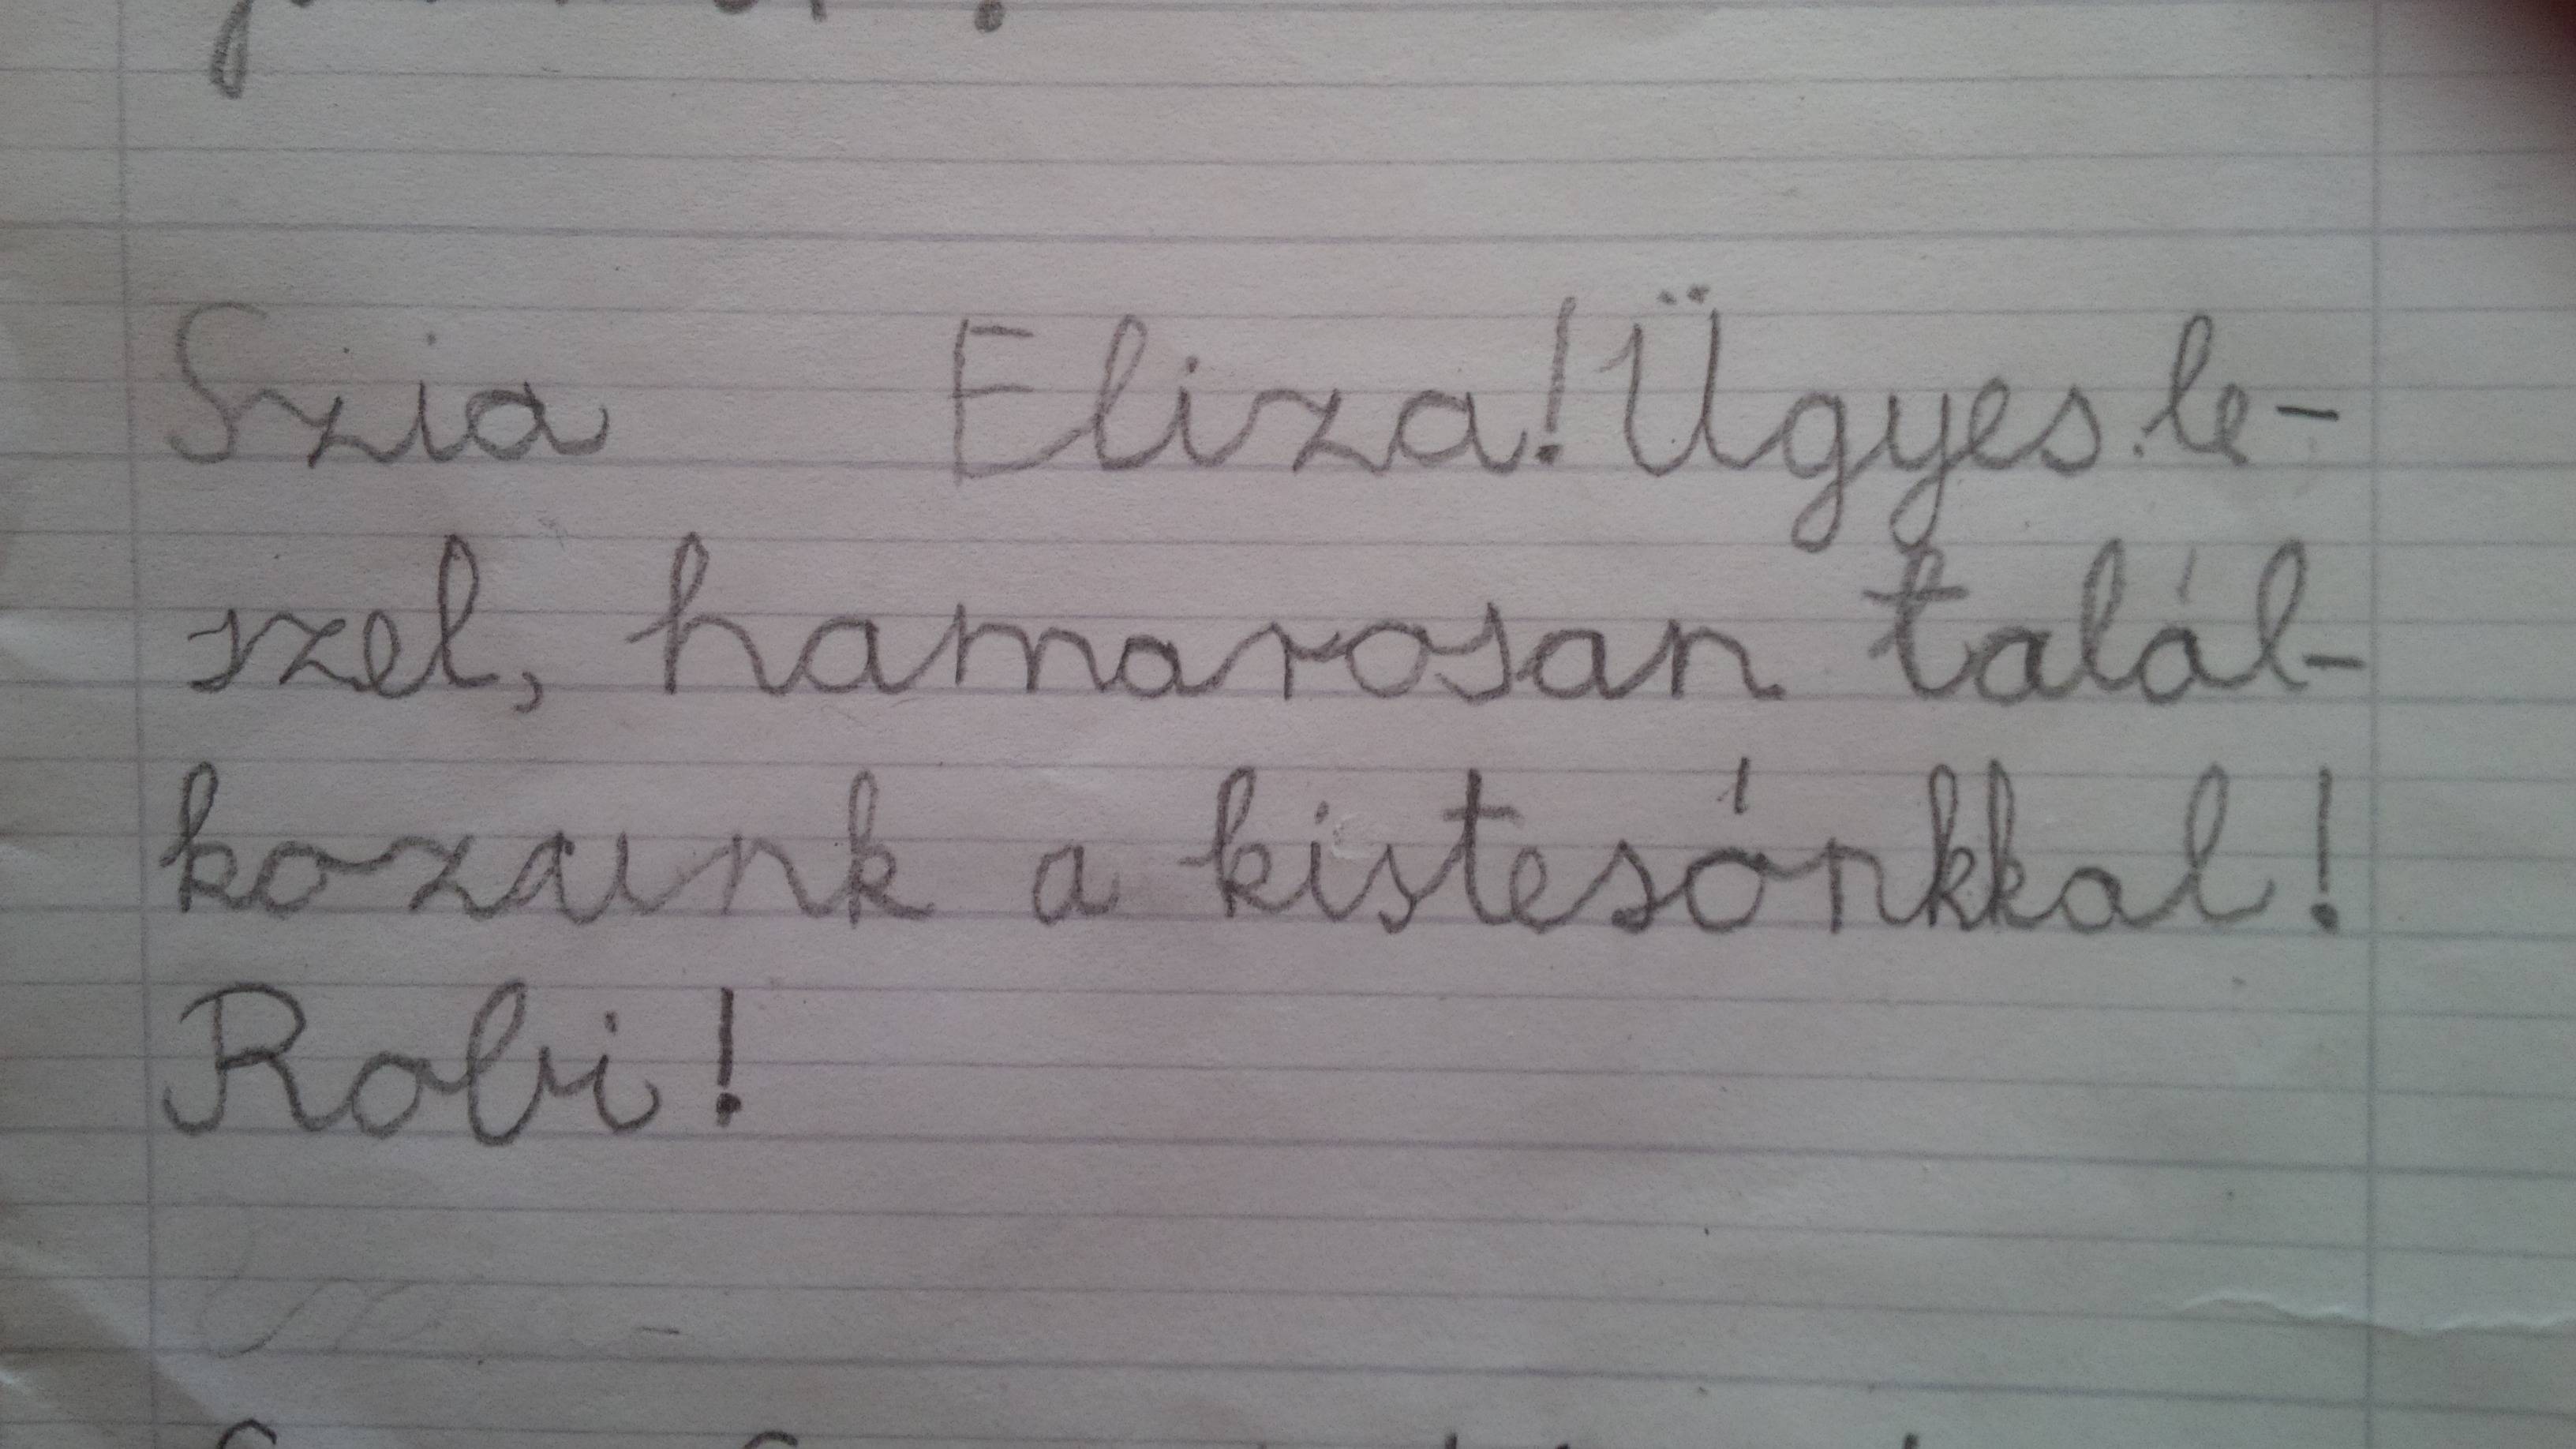 Szia Eliza! Ügyes le-
szel, hamarosan talál-
kozunk a kistesónkkal!
Robi!